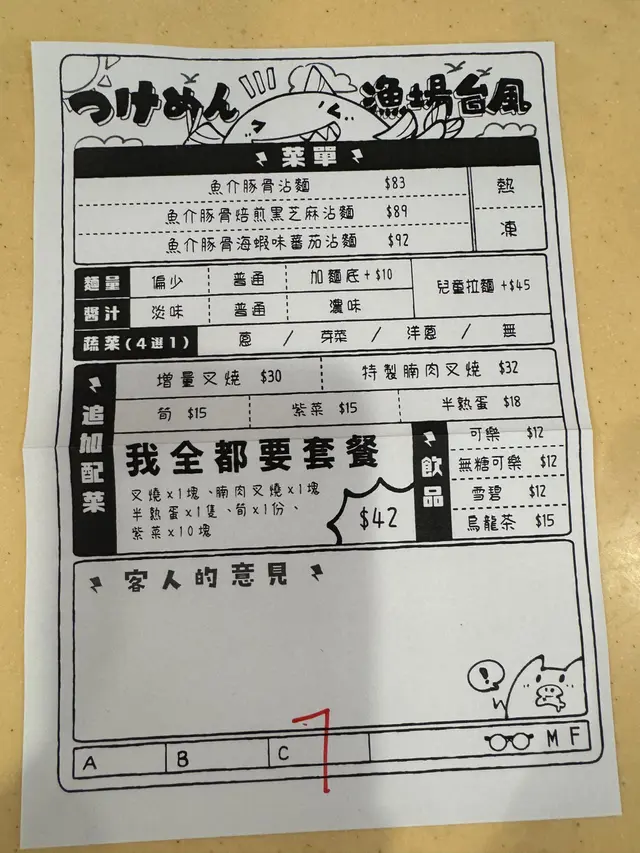 つけめん 漁場台風
菜單
魚介豚骨沾麵 $83
魚介豚骨焙煎黑芝麻沾麵 $89
魚介豚骨海蝦味蕃茄沾麵 $92
熱
凍
麵量 偏少 普通 加麵底+$10
兒童拉麵+$45
醬汁 淡味 普通 濃味
蔬菜(4選1) 蔥 / 芽菜 / 洋蔥 / 無
追加配菜
增量叉燒 $30 特製腩肉叉燒 $32
筍 $15 紫菜 $15 半熟蛋 $18
我全都要套餐
叉燒x1塊、腩肉叉燒x1塊
半熟蛋x1隻、筍x1份、
紫菜x10塊
$42
飲品
可樂 $12
無糖可樂 $12
雪碧 $12
烏龍茶 $15
客人的意見
!
A B C M F
7